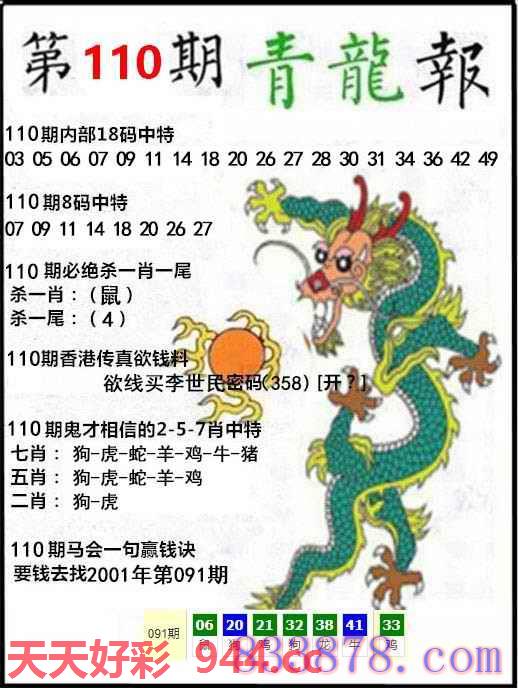 第110期青龍報
110期内部18码中特
03 05 06 07 09 11 14 18 20 26 27 28 30 31 34 36 42 49
110期8码中特
07 09 11 14 18 20 26 27
110期必绝杀一肖一尾
杀一肖：（鼠）
杀一尾：（4）
110期香港传真欲钱料
欲线买李世民密码(358) [开？]
110期鬼才相信的2-5-7肖中特
七肖：狗-虎-蛇-羊-鸡-牛-猪
五肖：狗-虎-蛇-羊-鸡
二肖：狗-虎
110期马会一句赢钱诀
要钱去找2001年第091期
091期 06 20 21 32 38 41 33
鼠 狗 鸡 狗 龙 牛 鸡
天天好彩 944.cc
838878.com